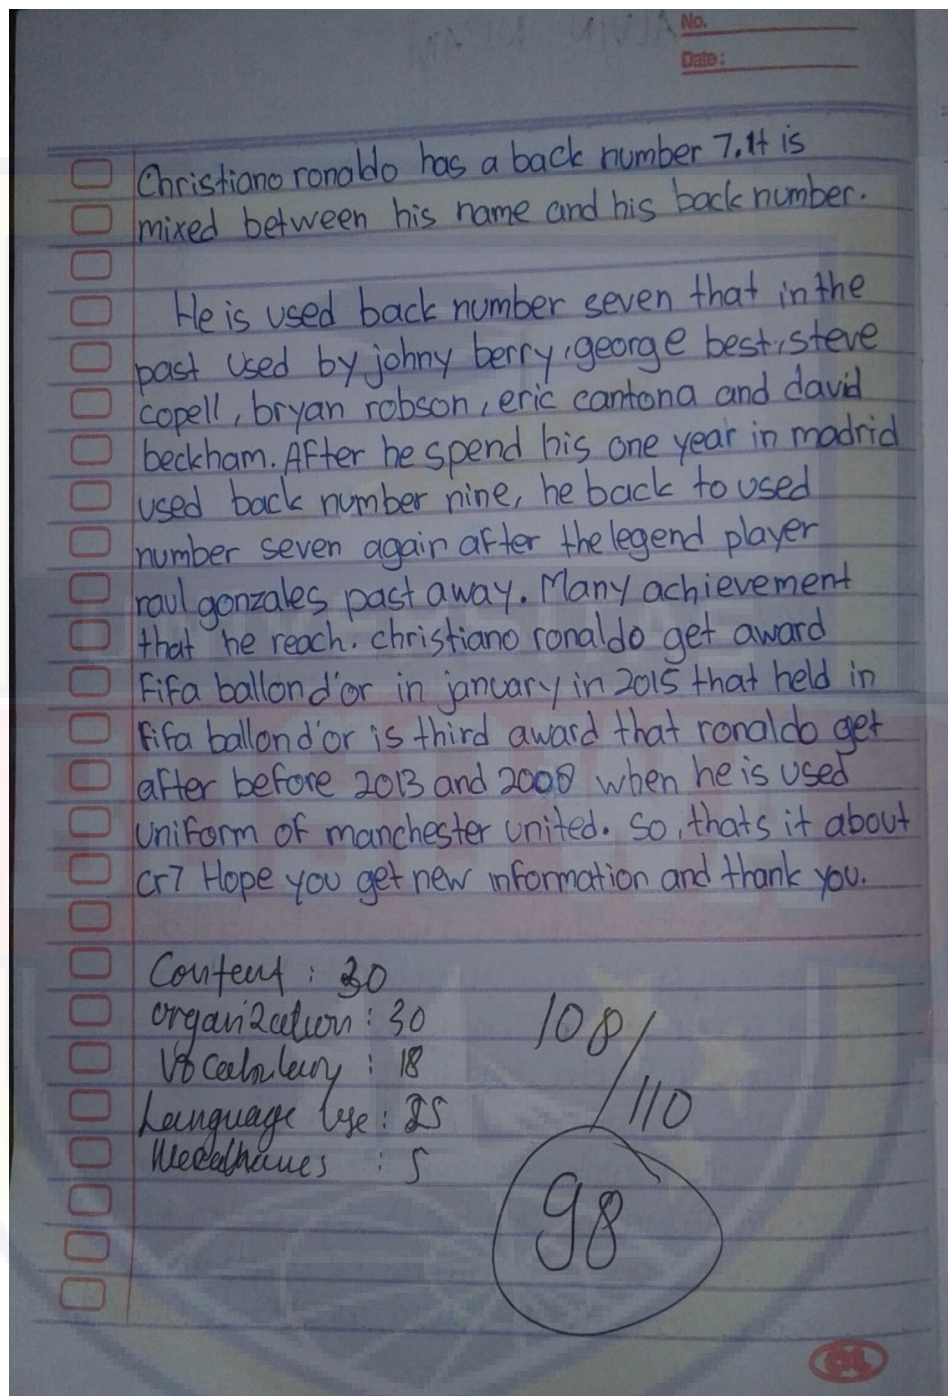 No.
Date:
Christiano ronaldo has a back number 7. It is
mixed between his name and his back number.
He is used back number seven that in the
past used by johny berry, george best, steve
copell, bryan robson, eric cantona and david
beckham. After he spend his one year in madrid
used back number nine, he back to used
number seven again after the legend player
raul gonzales past away. Many achievement
that he reach. christiano ronaldo get award
fifa ballon d'or in january in 2015 that held in
fifa ballon d'or is third award that ronaldo get
after before 2013 and 2008 when he is used
uniform of manchester united. So, thats it about
cr7 Hope you get new information and thank you.
Content : 30
Organization : 30
Vocabulary : 18
Language Use : 25
Mechanics : 5
108/110
98